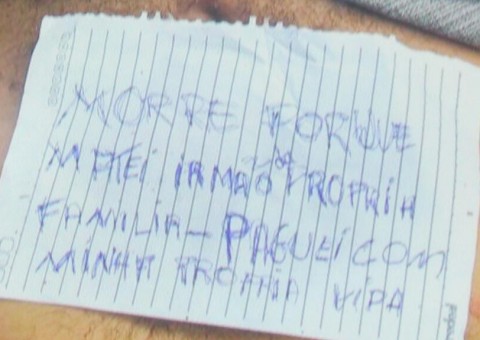 MORRE PORQUE
MATEI IRMÃO DA PROPRIA
FAMILIA - PAGUEI COM
MINHA PROPRIA VIDA